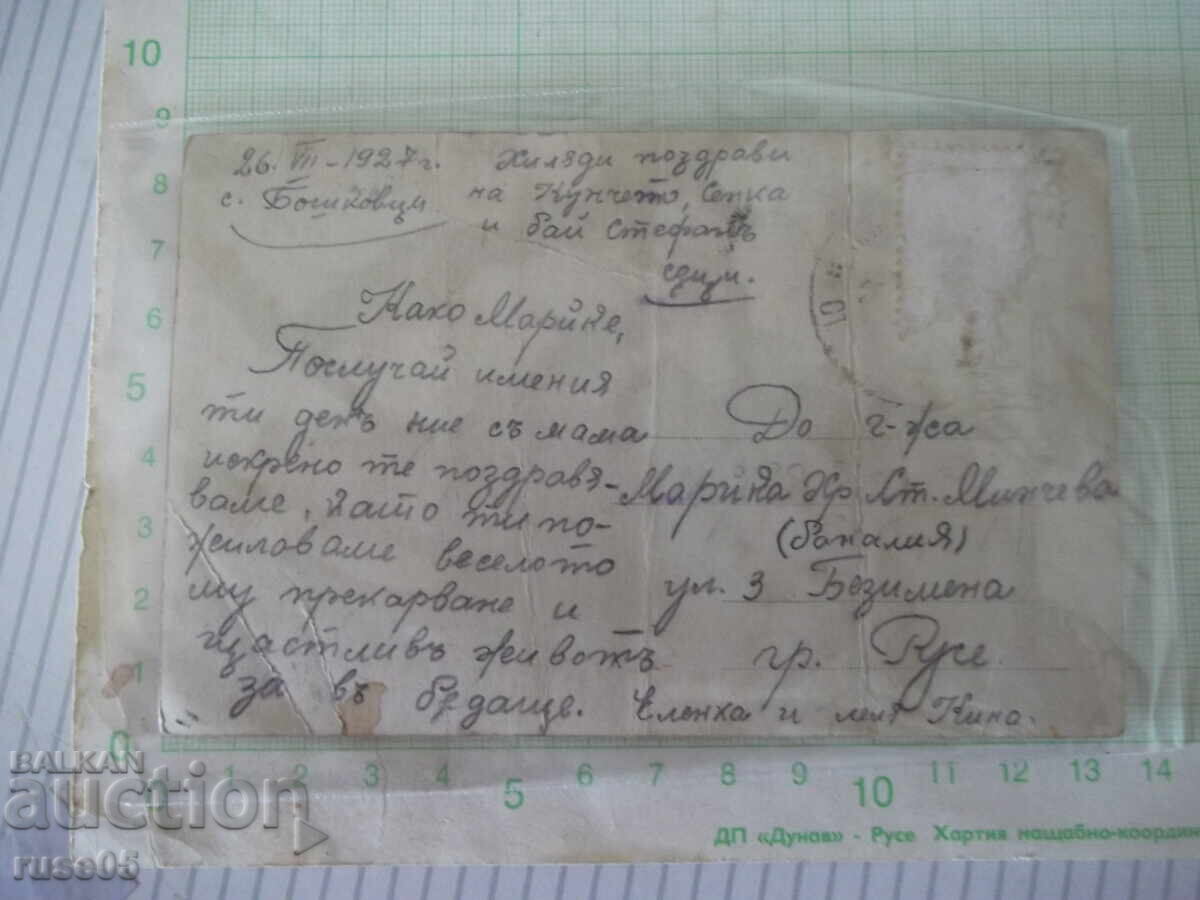 26. VII - 1927 г.
с. Бошковци
Хиляди поздрави
на Кунчето, Сенка
и бай Стефанъ
Како Марийке,
По случай имения
ти денъ ние съ мама
искрено те поздравя-
ваме, като ти по-
желоваме веселото
му прекарване и
щастливъ животъ
за въ бѫдаще. Еленка и леля Кина.
До г-жа
Марийка Хр. Ст. Минчева
(бакалия)
ул. 3 Безимена
гр. Русе
10
9
8
7
6
5
4
3
2
1
0
0 1 2 3 4 5 6 7 8 9 10 11 12 13 14
ДП «Дунав» - Русе Хартия
BALKAN
auction
ruse05